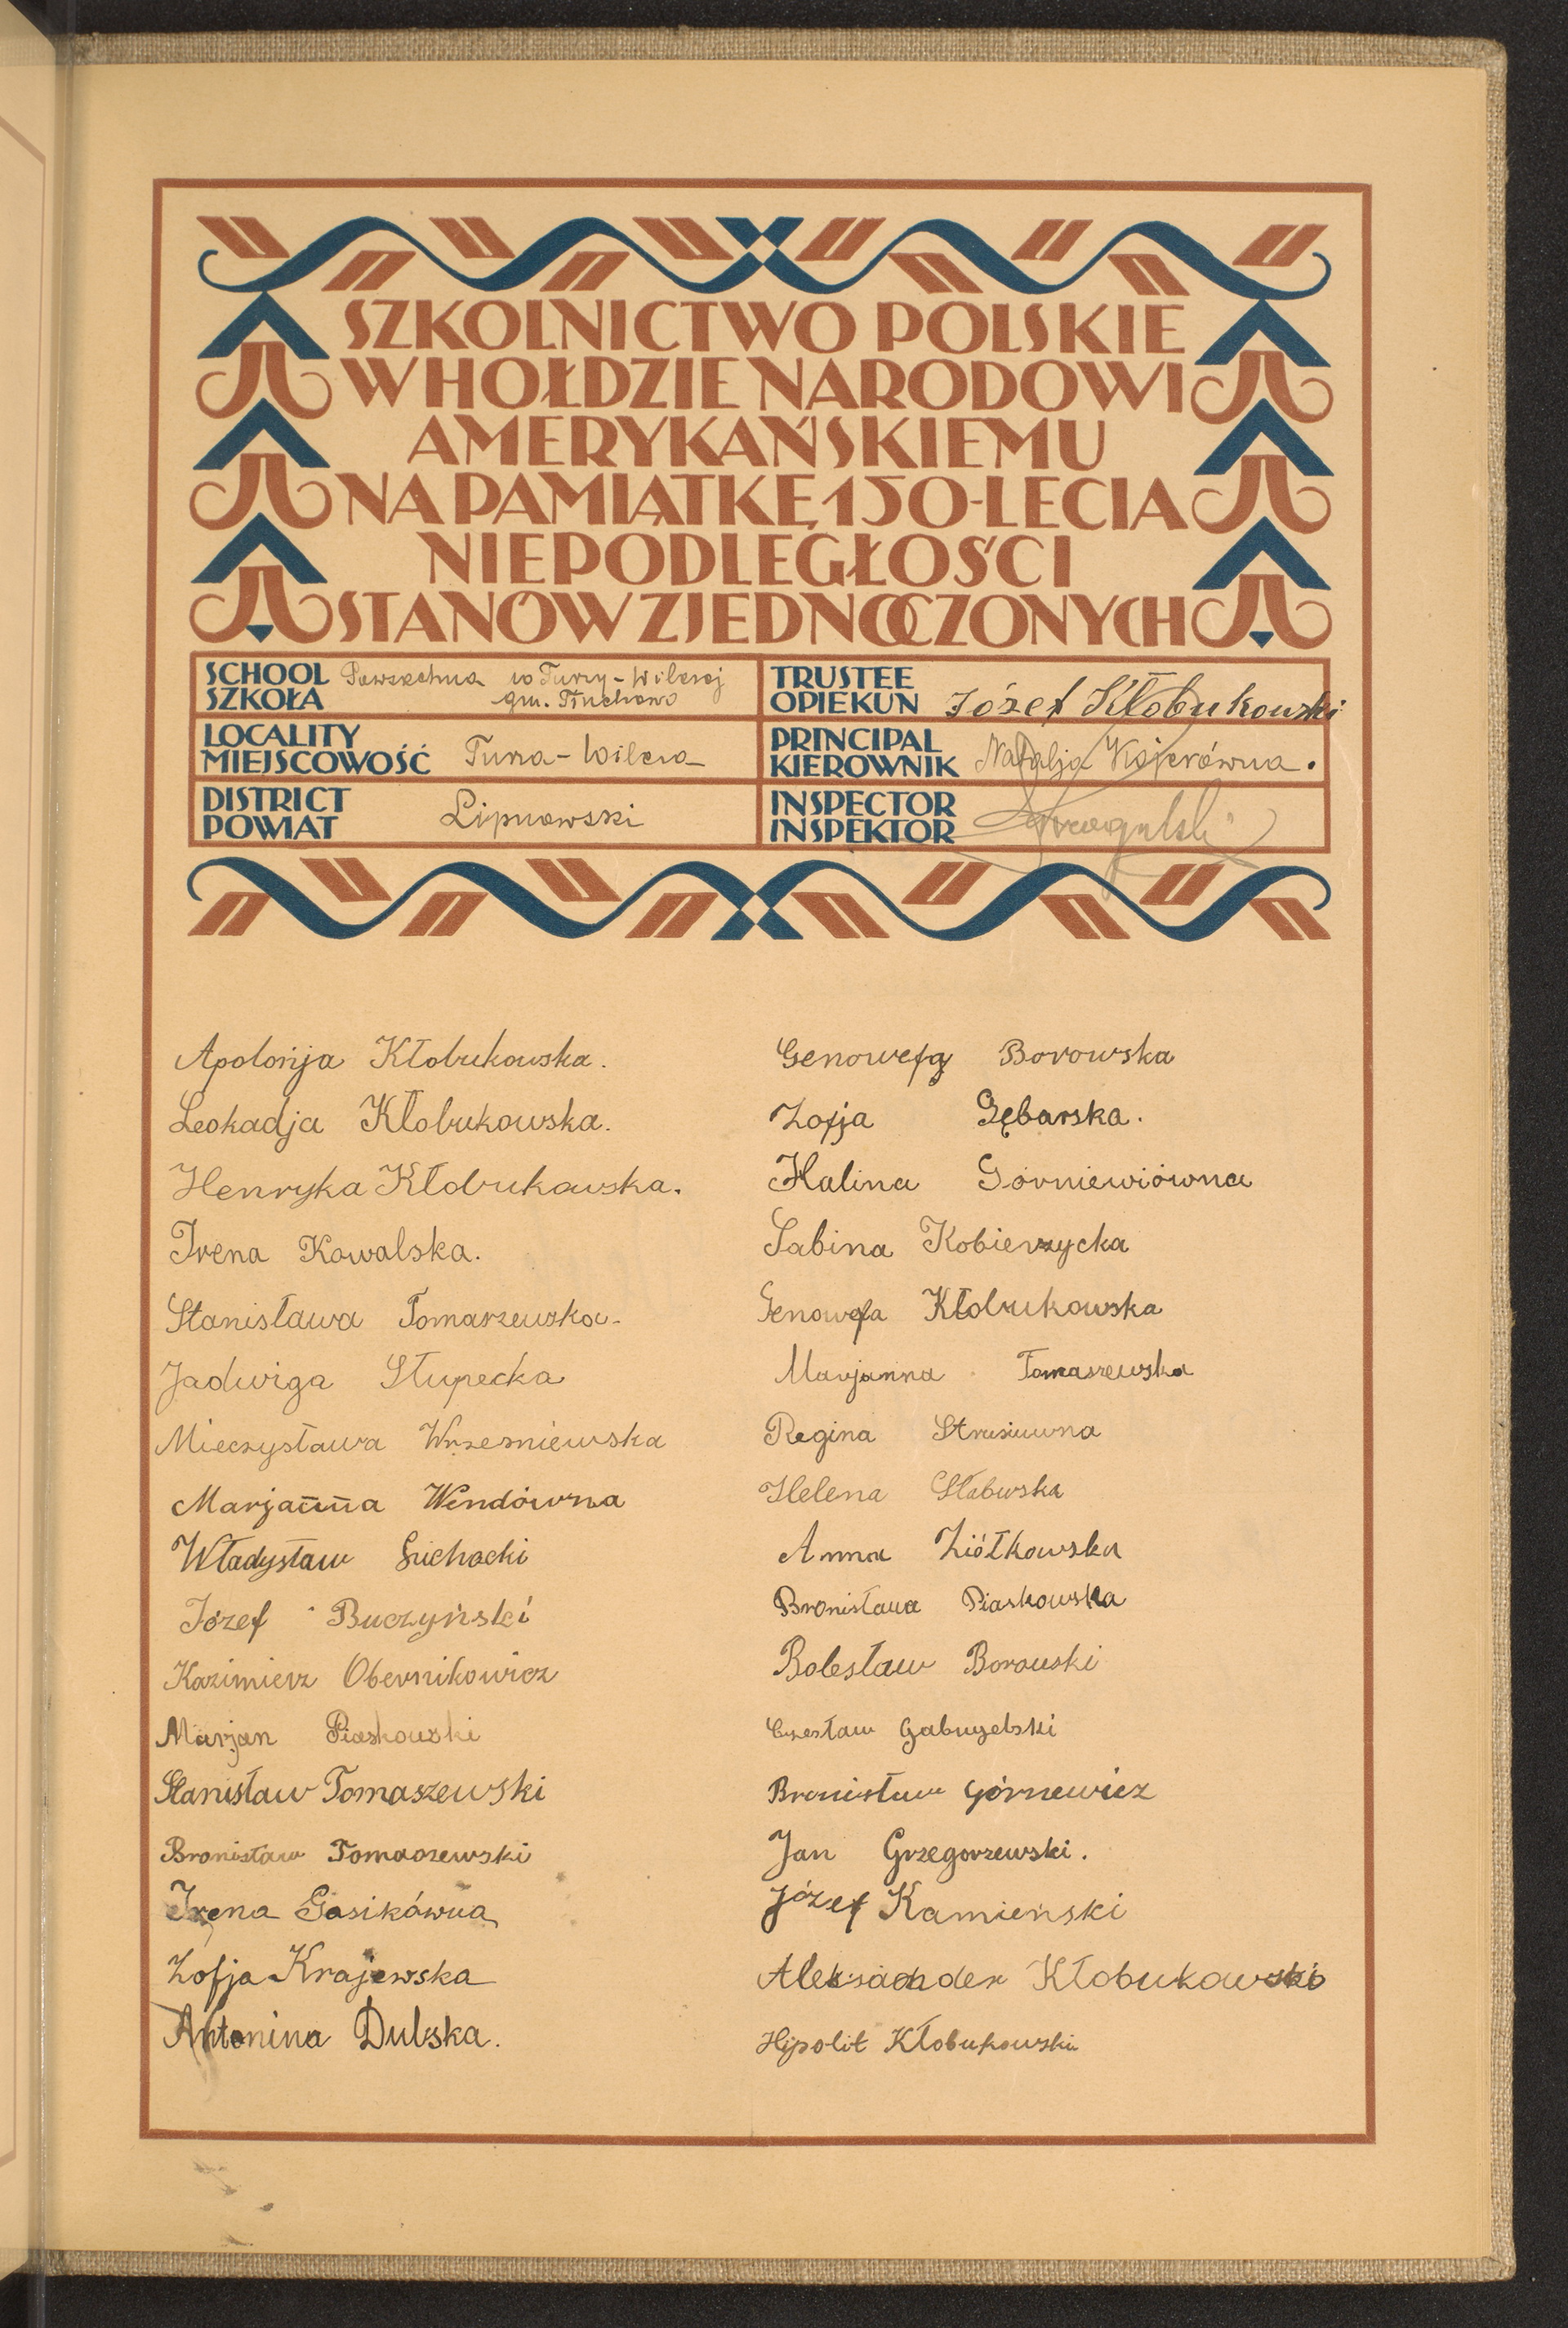 SZKOLNICTWO POLSKIE
W HOŁDZIE NARODOWI
AMERYKAŃSKIEMU
NA PAMIĄTKĘ 150-LECIA
NIEPODLEGŁOŚCI
STANÓW ZJEDNOCZONYCH
SCHOOL
SZKOŁA
Powszechna w Turzy-Wilczej
gm. Tłuchowo
TRUSTEE
OPIEKUN
Józef Kłobukowski
LOCALITY
MIEJSCOWOŚĆ
Turza-Wilcza
PRINCIPAL
KIEROWNIK
Natalja Kojerówna.
DISTRICT
POWIAT
Lipnowski
INSPECTOR
INSPEKTOR
Apolonja Kłobukowska.
Leokadja Kłobukowska.
Henryka Kłobukowska.
Irena Kowalska.
Stanisława Tomarzewska
Jadwiga Słupecka
Mieczysława Wrzesniewska
Marjanna Wendówna
Władysław Suchocki
Józef Buczyński
Kazimierz Obernikowicz
Marjan Piaskowski
Stanisław Tomaszewski
Bronisław Tomaszewski
Irena Gasikówna
Zofja Krajewska
Antonina Dulska.
Genowefa Borowska
Zofja Gębarska.
Halina Górniewiówna
Sabina Kobierzycka
Genowefa Kłobukowska
Marjanna Tomaszewska
Regina
Helena
Anna Ziółkowska
Bronisława Piaskowska
Bolesław Borowski
Czesław
Bronisław Górnewicz
Jan Grzegorzewski.
Józef Kamieński
Aleksander Kłobukowski
Hipolit Kłobukowski